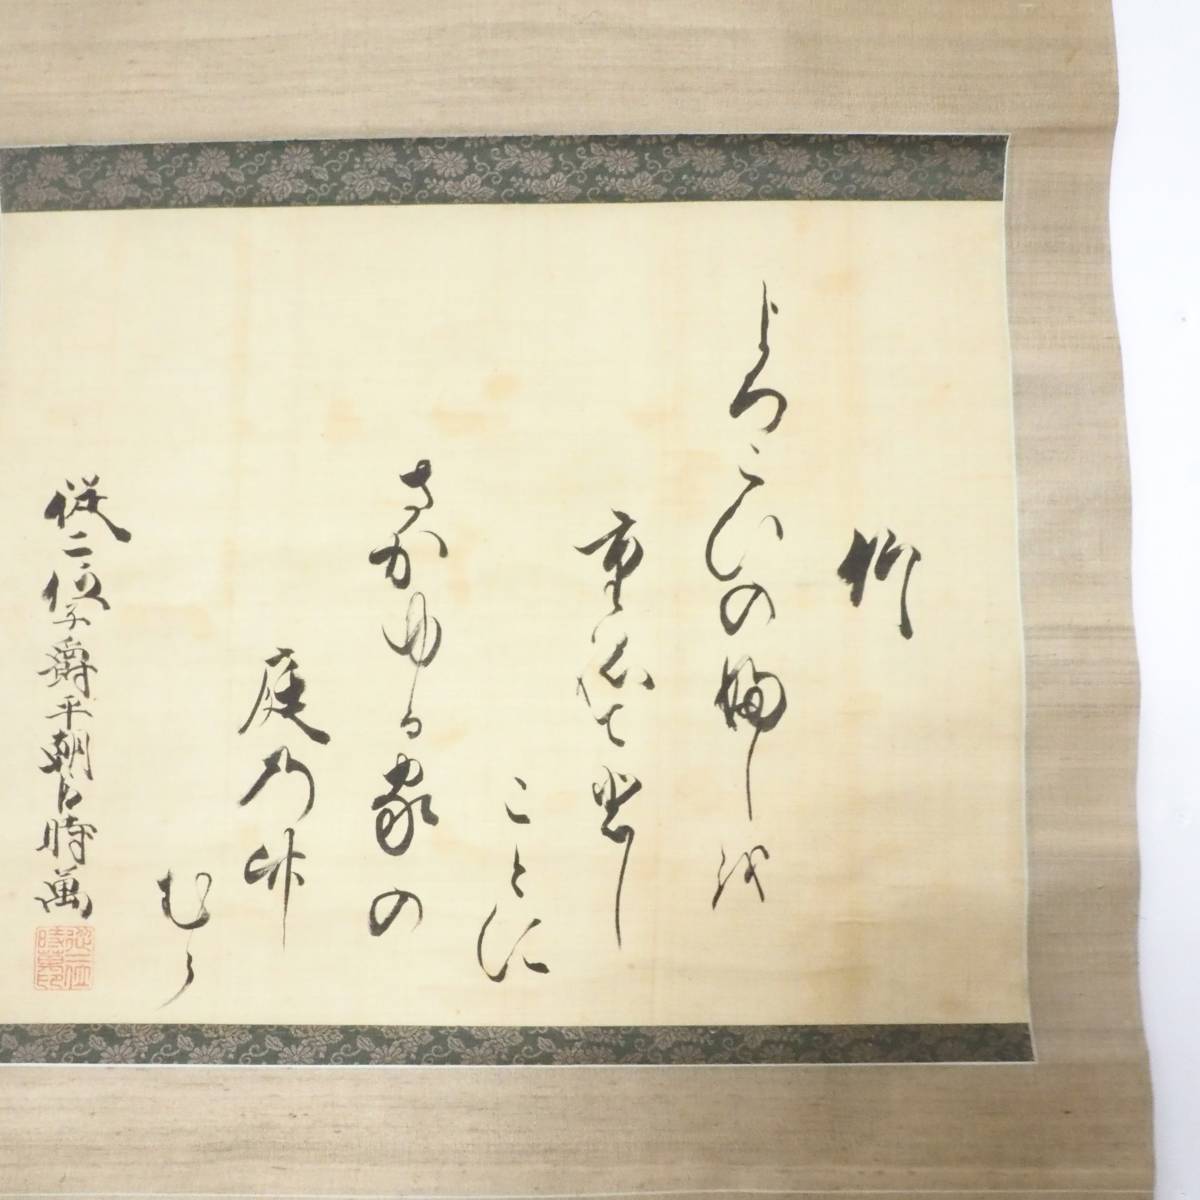 竹
よろこひの婦しを
重祢て世々
ことに
さかゆる家の
庭乃竹
むら
従二位子爵平朝臣時萬